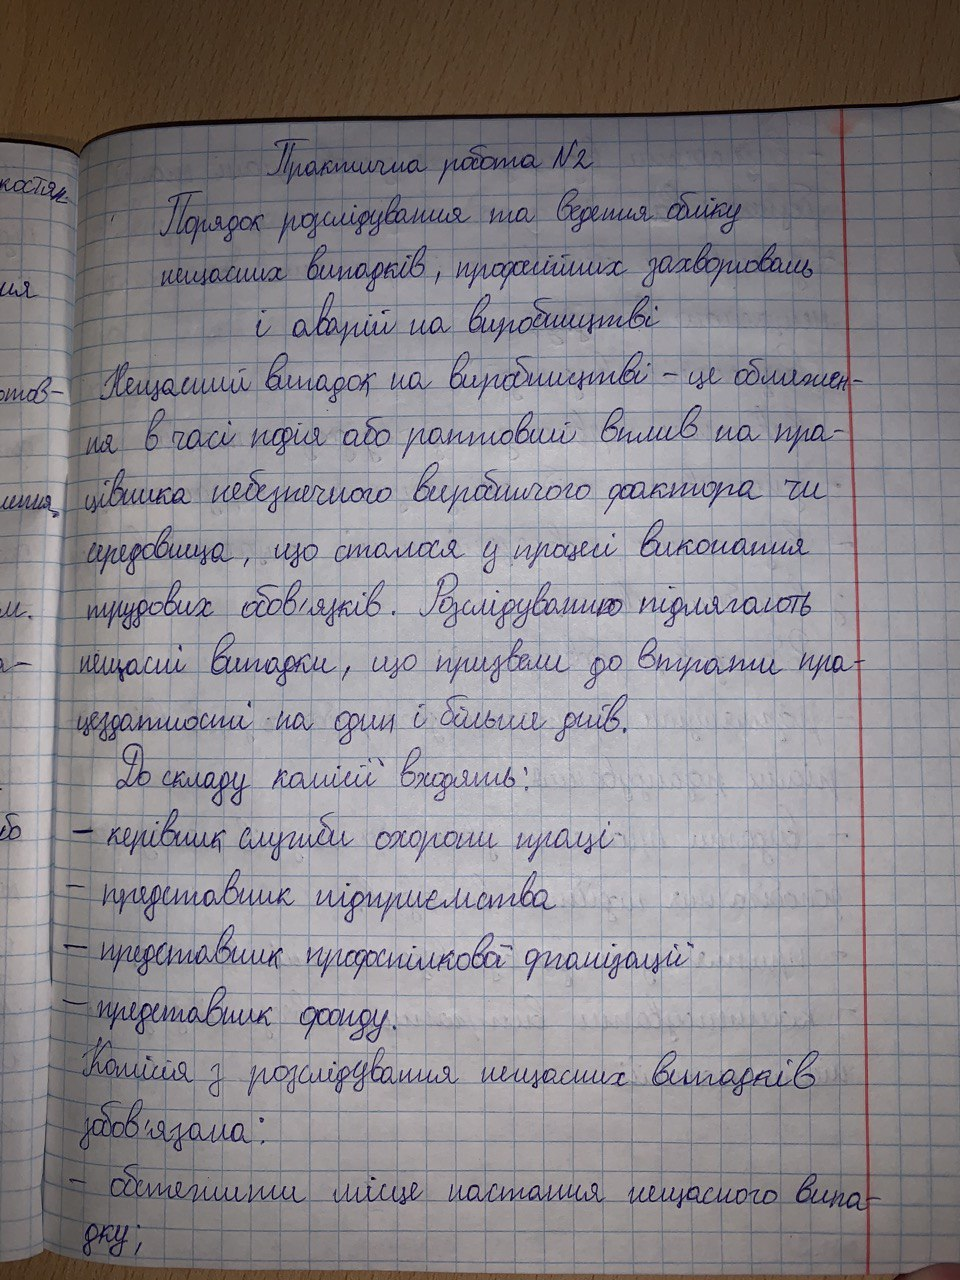 Практична робота №2
Порядок розслідування та ведення обліку
нещасних випадків, професійних захворювань
і аварій на виробництві
Нещасний випадок на виробництві - це обмежен-
ня в часі подія або раптовий вплив на пра-
цівника небезпечного виробничого фактора чи
середовища, що сталося у процесі виконання
трудових обов'язків. Розслідуванню підлягають
нещасні випадки, що призвели до втрати пра-
цездатності на один і більше днів.
До складу комісії входять:
- керівник служби охорони праці
- представник підприємства
- представник профспілкової організації
- представник фонду.
Комісія з розслідування нещасних випадків
зобов'язана:
- обстежити місце настання нещасного випа-
дку;
костян
ня
отов-
лення
м.
а-
бо